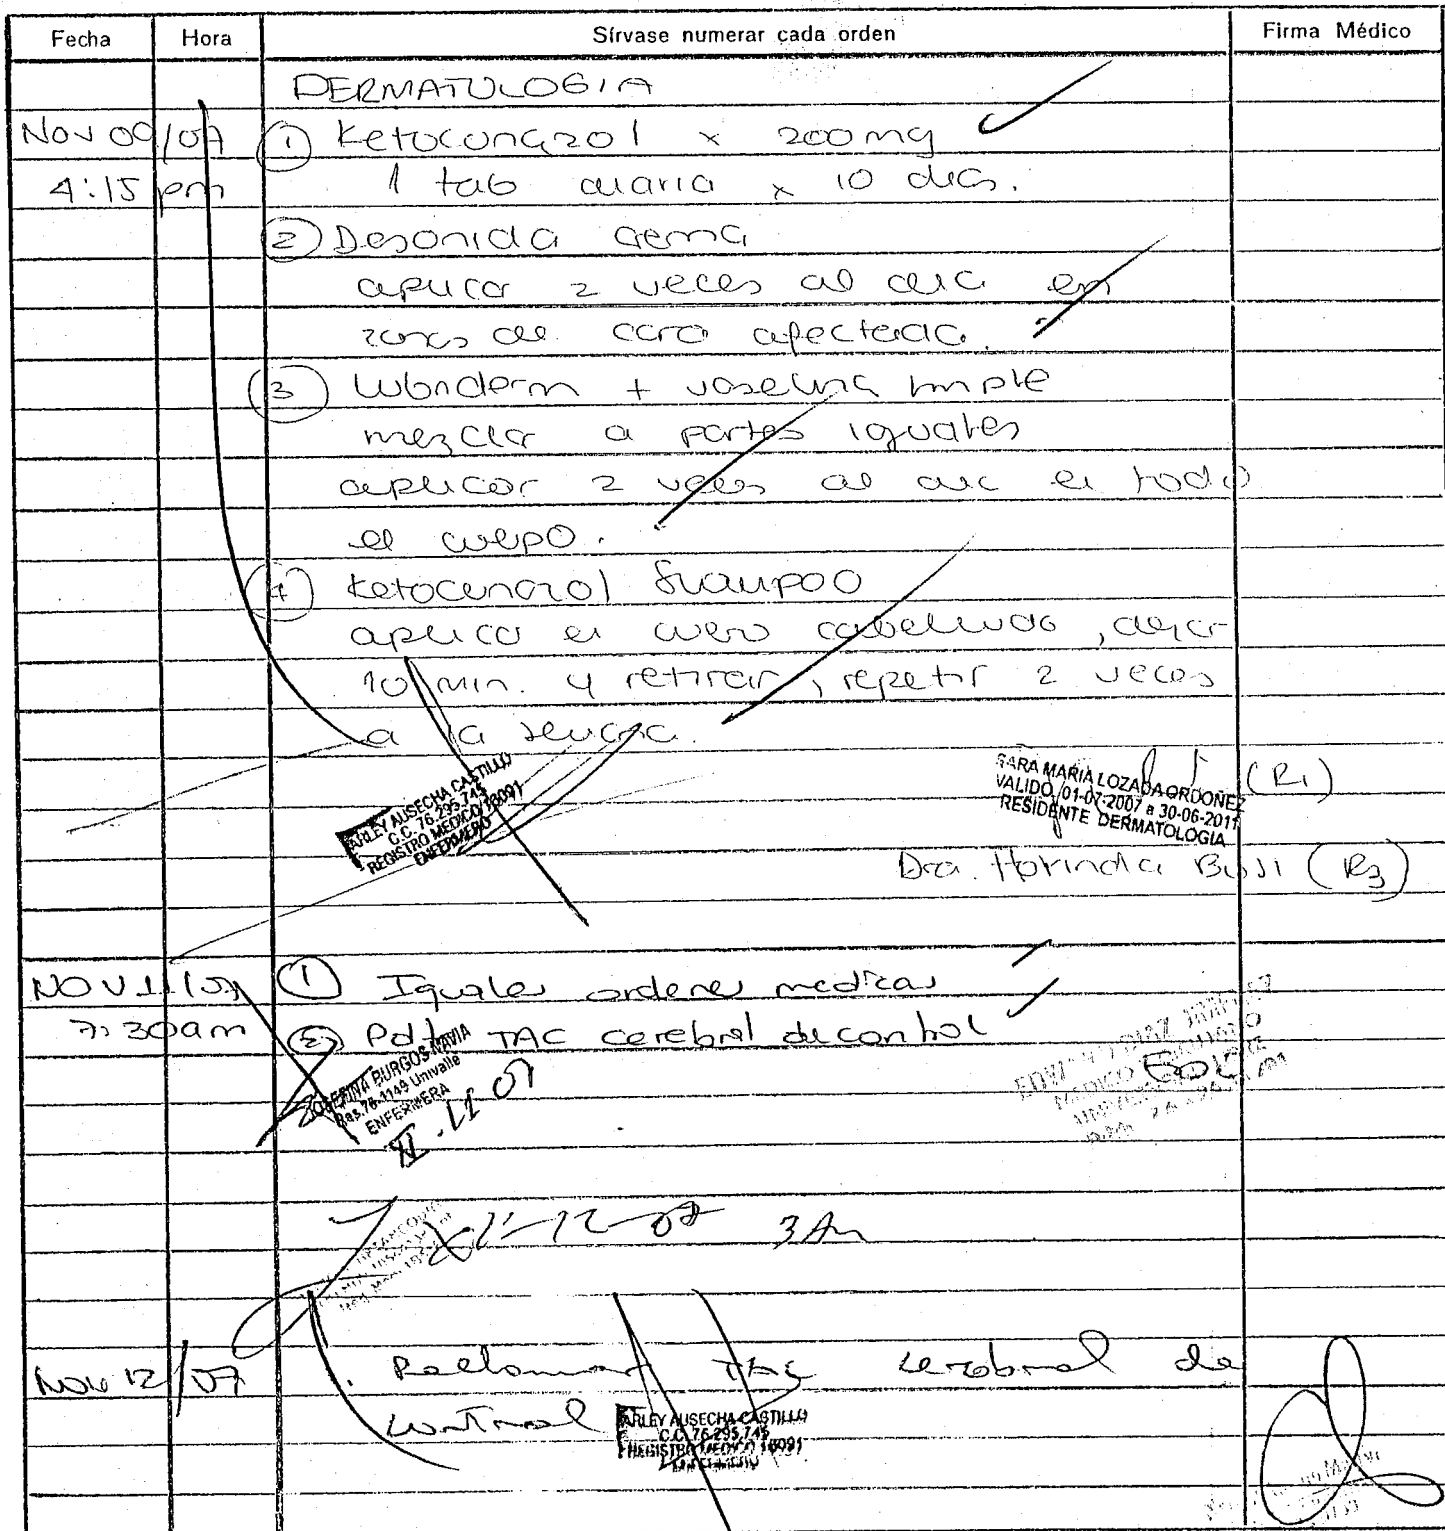 Fecha Hora Sírvase numerar cada orden Firma Médico
DERMATOLOGIA
Nov 09/07 ① Ketoconazol x 200mg
4:15 pm 1 tab diaria x 10 dias.
② Desonida crema
aplicar 2 veces al dia en
zonas de cara afectada.
③ Lubriderm + vaselina simple
mezclar a partes iguales
aplicar 2 veces al dia en todo
el cuerpo.
④ Ketoconazol Shampoo
aplicar en cuero cabelludo, dejar
10 min. y retirar, repetir 2 veces
a la semana.
ARLEY AUSECHA CASTILLO
C.C. 76.295.745
REGISTRO MEDICO 18091
ENFERMERO
SARA MARIA LOZADA ORDOÑEZ (R1)
VALIDO 01-07-2007 a 30-06-2011
RESIDENTE DERMATOLOGIA
Dra. (R3)
NOV 11/07 ① Iguales ordenes medicas
7:30am ② Pdte TAC cerebral de control
JOSEFINA BURGOS NAVIA
Res. 76-1149 Univalle
ENFERMERA
XI-11 07
XI-12-07 3 Am
Nov 12/07 . Reclamar TAC cerebral de
control
ARLEY AUSECHA CASTILLO
C.C. 76.295.745
REGISTRO MEDICO 18091
ENFERMERO